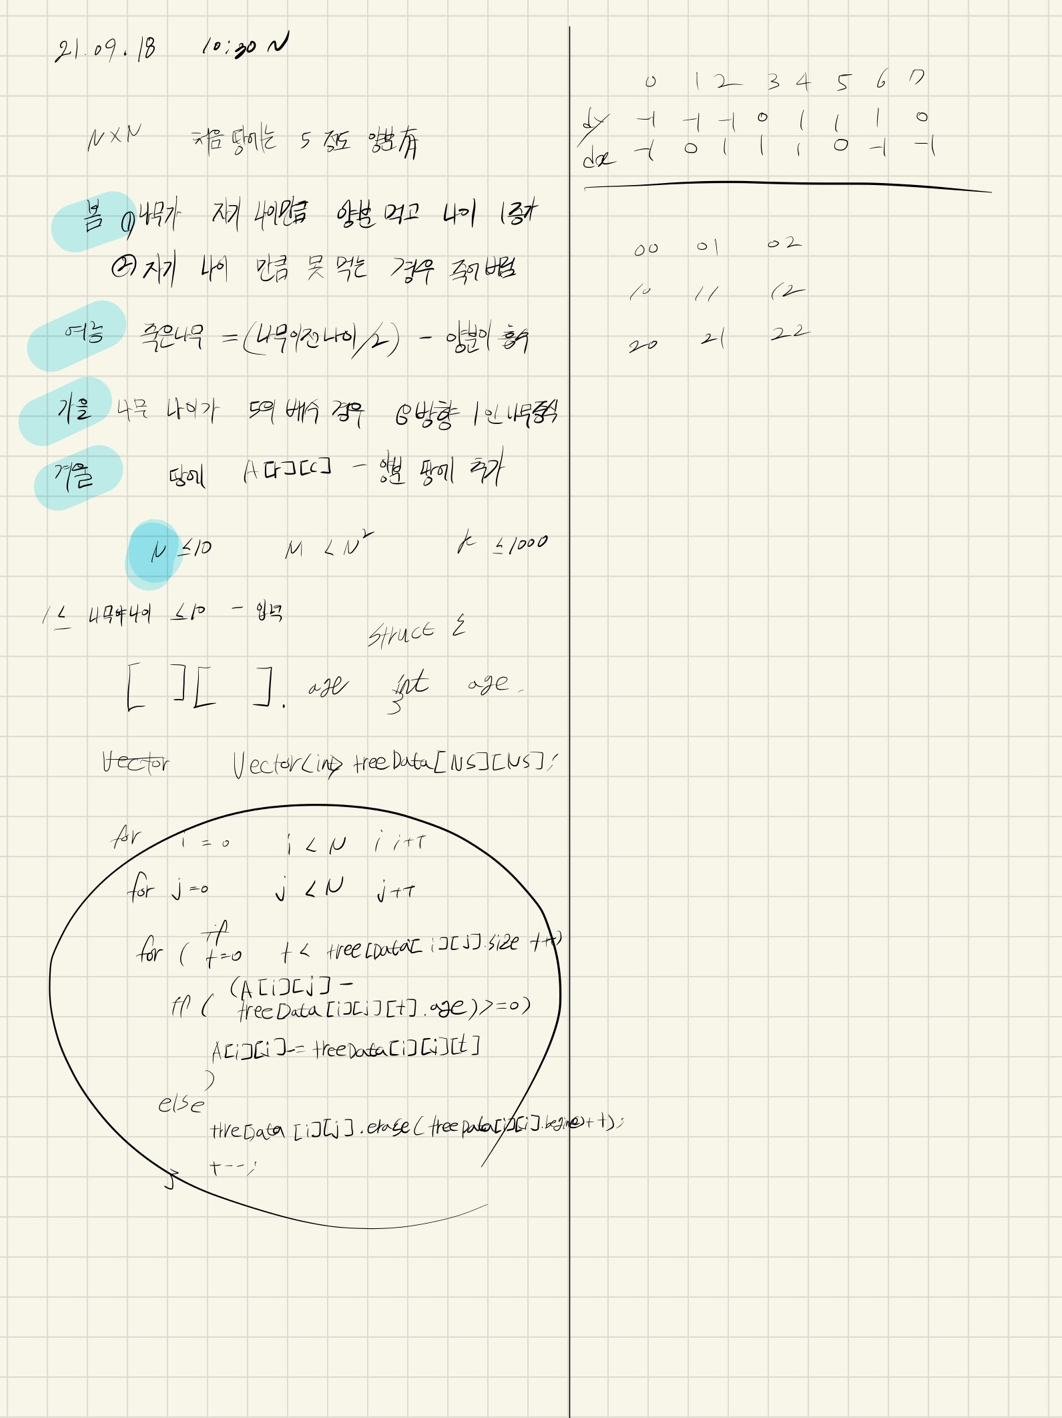 21.09.18 10:30 N
N×N 처음 땅에는 5 정도 양분 有
봄 ① 나무가 자기 나이만큼 양분 먹고 나이 1증가
② 자기 나이 만큼 못 먹는 경우 죽어버림
여름 죽은나무 = (나무이전나이/2) - 양분이 흡수
가을 나무 나이가 5의 배수 경우 8방향 1인 나무증식
겨울 땅에 A[r][c] - 양분 땅에 추가
N ≤10 M < N² K ≤1000
1 ≤ 나무나이 ≤10 - 입력
struct {
[ ][ ]. age int age.
}
Vector Vector<int> treeData[NS][NS];
for i=0 i<N i i++
for j=0 j<N j++
for ( t=0 t< treeData[i][j].size t++)
(A[i][j] -
if ( treeData[i][j][t].age)>=0)
A[i][j]-= treeData[i][j][t]
}
else
treeData [i][j].erase(treeData[i][j].begin()+t);
t--;
}
0 1 2 3 4 5 6 7
dy -1 -1 -1 0 1 1 1 0
dx -1 0 1 1 1 0 -1 -1
00 01 02
10 11 12
20 21 22